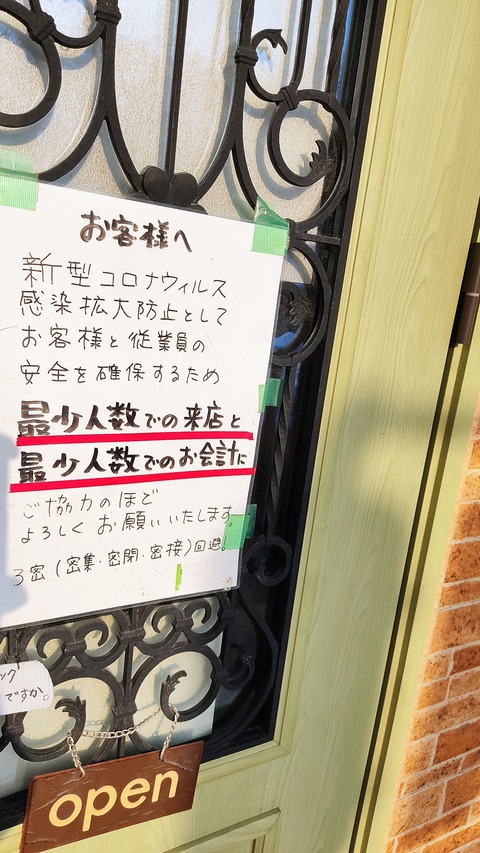 お客様へ
新型コロナウィルス
感染拡大防止として
お客様と従業員の
安全を確保するため
最少人数での来店と
最少人数でのお会計に
ご協力のほど
よろしくお願いいたします。
3密(密集・密閉・密接)回避!
ング
ですか。
open